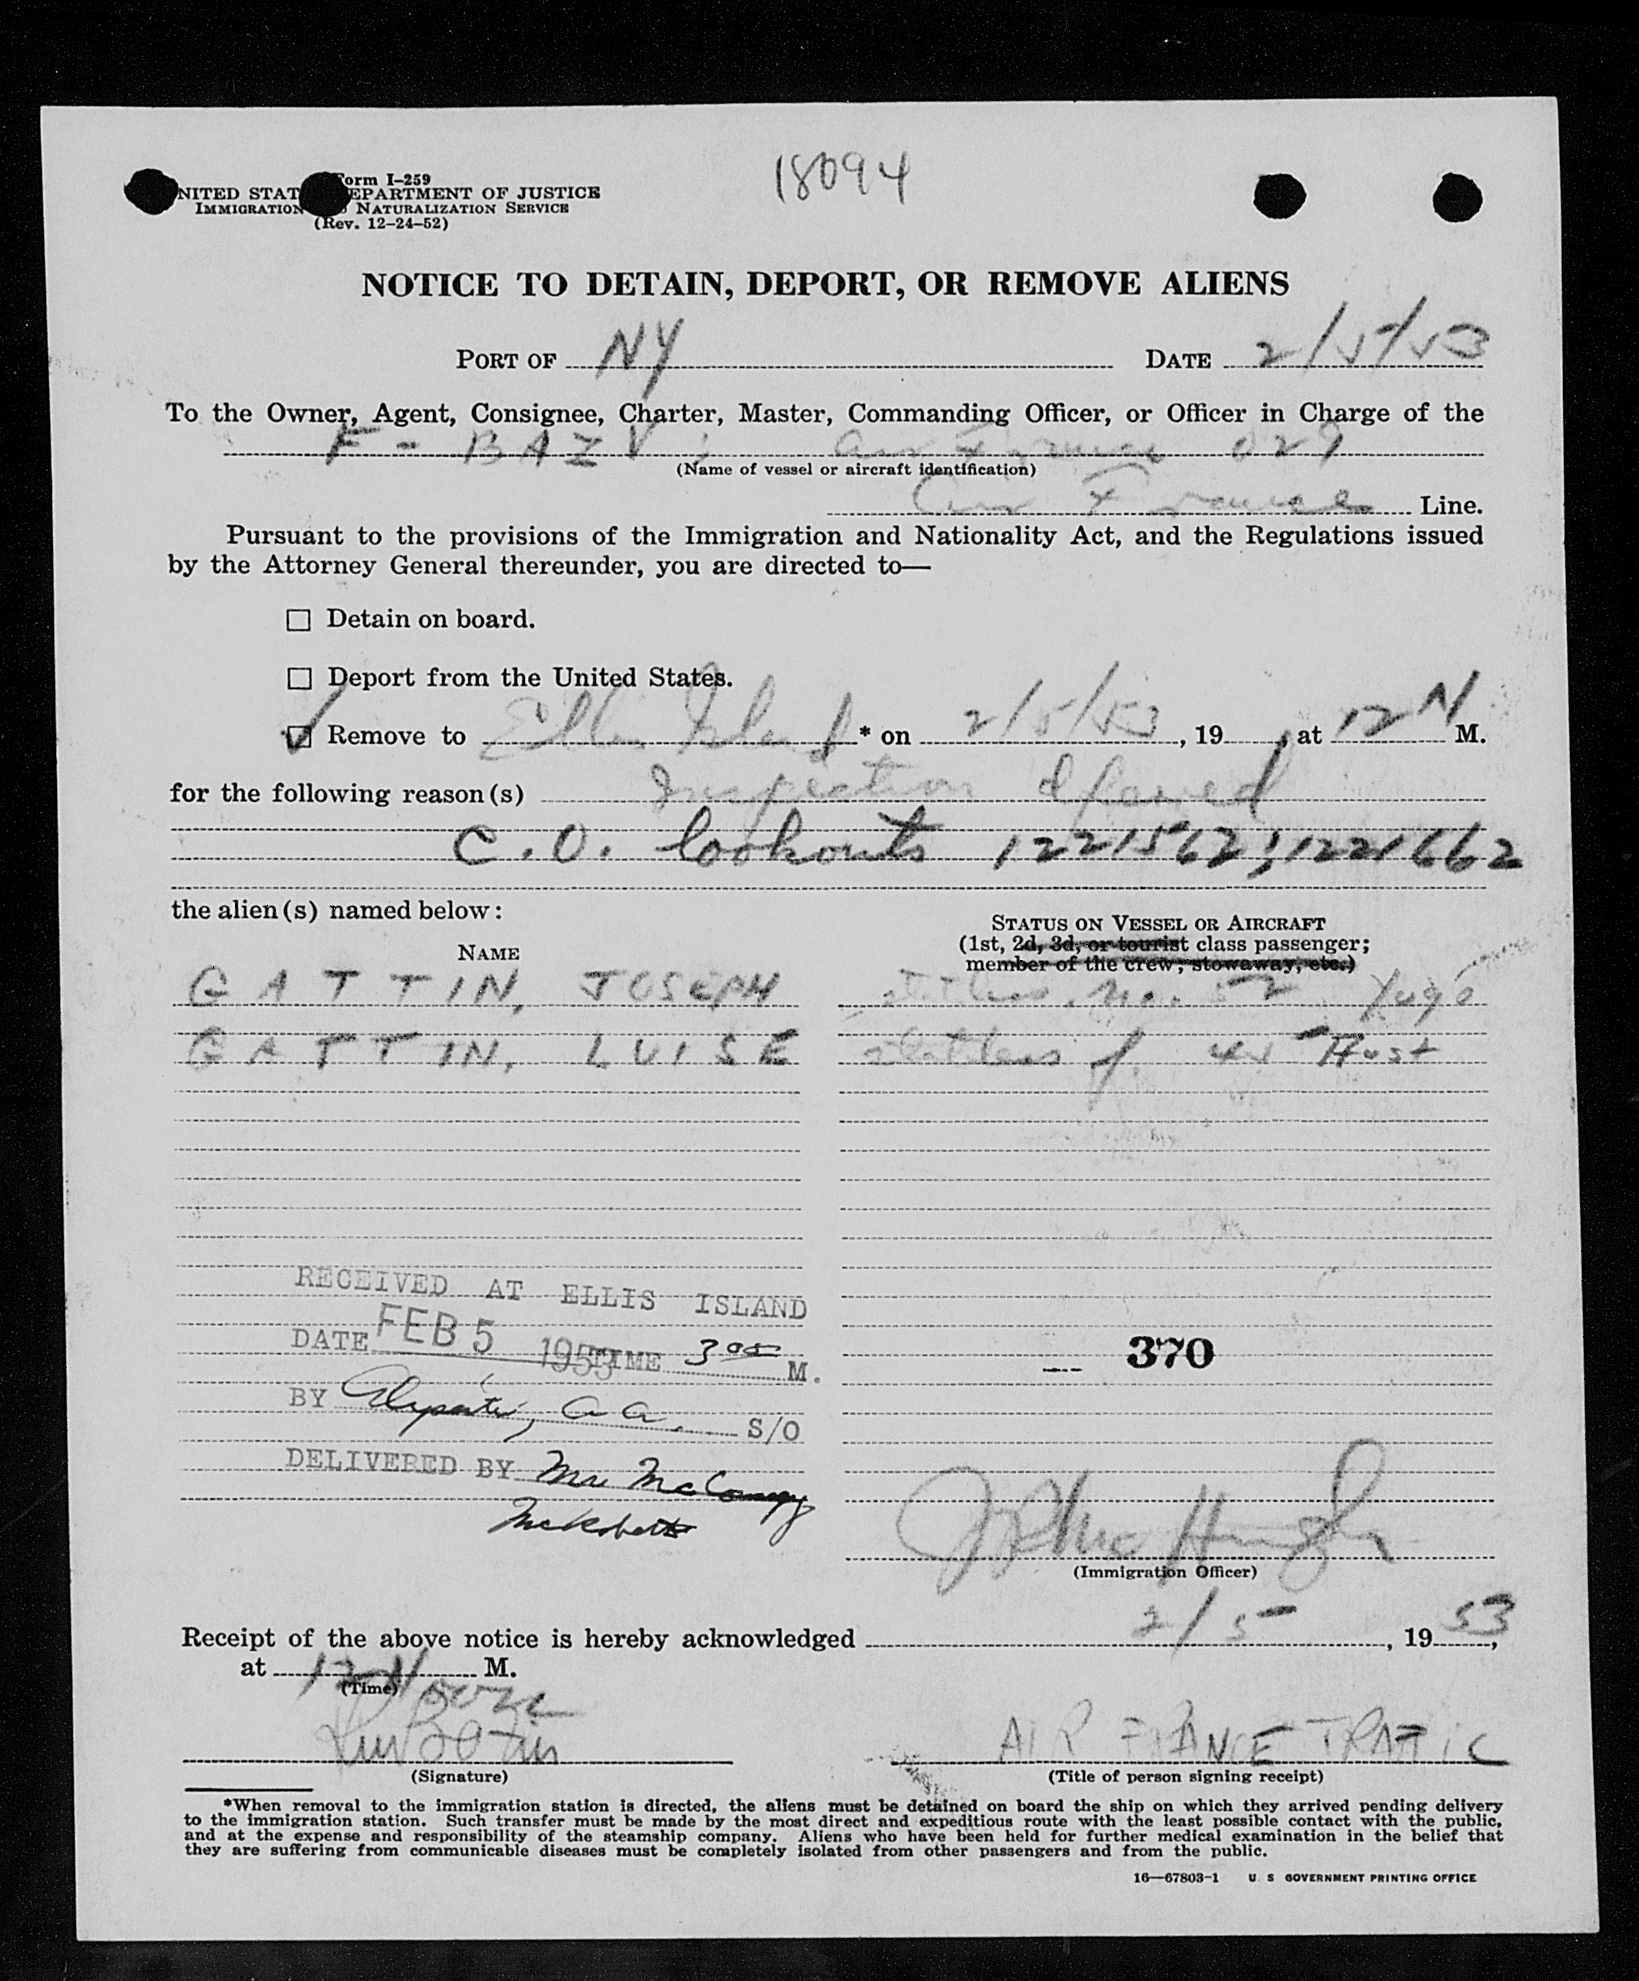 18094
Form I-259
UNITED STATES DEPARTMENT OF JUSTICE
IMMIGRATION AND NATURALIZATION SERVICE
(Rev. 12-24-52)
NOTICE TO DETAIN, DEPORT, OR REMOVE ALIENS
PORT OF NY DATE 2/5/53
To the Owner, Agent, Consignee, Charter, Master, Commanding Officer, or Officer in Charge of the
F - BAZV; Air France 029
(Name of vessel or aircraft identification)
Air France Line.
Pursuant to the provisions of the Immigration and Nationality Act, and the Regulations issued
by the Attorney General thereunder, you are directed to—
☐ Detain on board.
☐ Deport from the United States.
☑ Remove to Ellis Island * on 2/5/53, 19 , at 12 N M.
for the following reason(s) Inspection dferred
C.O. lookouts 1221562; 1221662
the alien(s) named below:
NAME
STATUS ON VESSEL OR AIRCRAFT
(1st, 2d, 3d, or tourist class passenger;
member of the crew; stowaway, etc.)
GATTIN, JOSEPH stateless m. 52 Yugo
GATTIN, LUISE stateless f. 45 Aust
RECEIVED AT ELLIS ISLAND
DATE FEB 5 1953 TIME 3 05 M.
BY S/O
DELIVERED BY Mr
370
(Immigration Officer)
Receipt of the above notice is hereby acknowledged 2/5, 1953,
at 12 N M.
(Time)
AIR FRANCE TRAFFIC
(Signature)
(Title of person signing receipt)
*When removal to the immigration station is directed, the aliens must be detained on board the ship on which they arrived pending delivery
to the immigration station. Such transfer must be made by the most direct and expeditious route with the least possible contact with the public,
and at the expense and responsibility of the steamship company. Aliens who have been held for further medical examination in the belief that
they are suffering from communicable diseases must be completely isolated from other passengers and from the public.
16—67803-1 U S GOVERNMENT PRINTING OFFICE